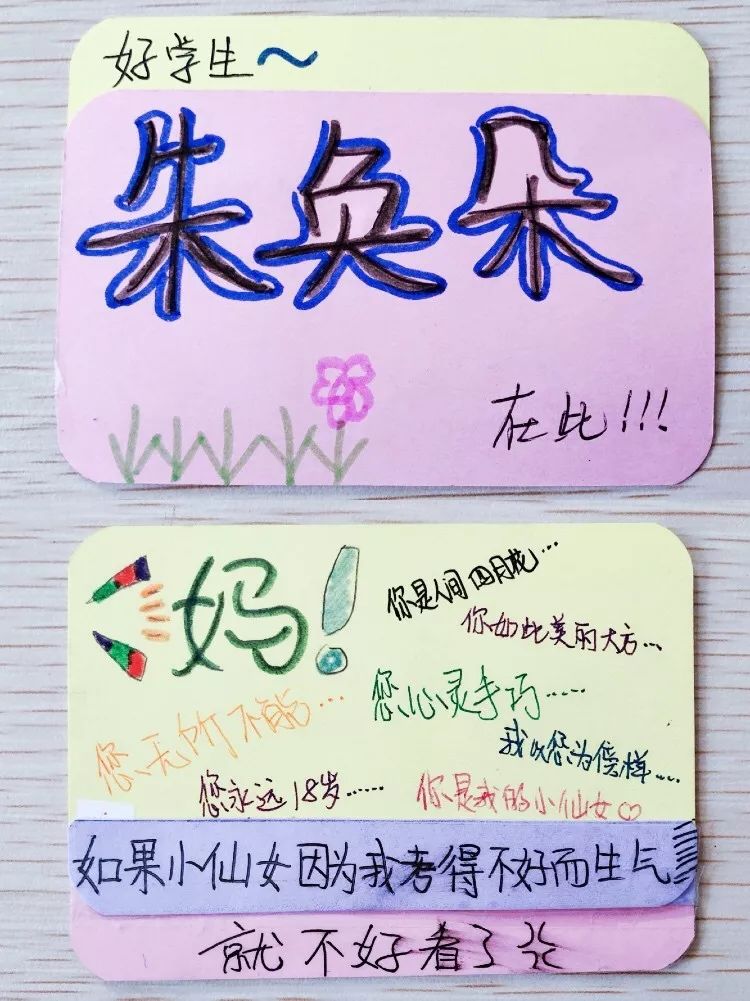 好学生~
朱奂朵
在此!!!
妈!
你是人间四月花...
你如此美丽大方...
您心灵手巧......
您无所不能...
我以您为榜样....
您永远18岁......
你是我的小仙女♡
如果小仙女因为我考得不好而生气
就不好看了